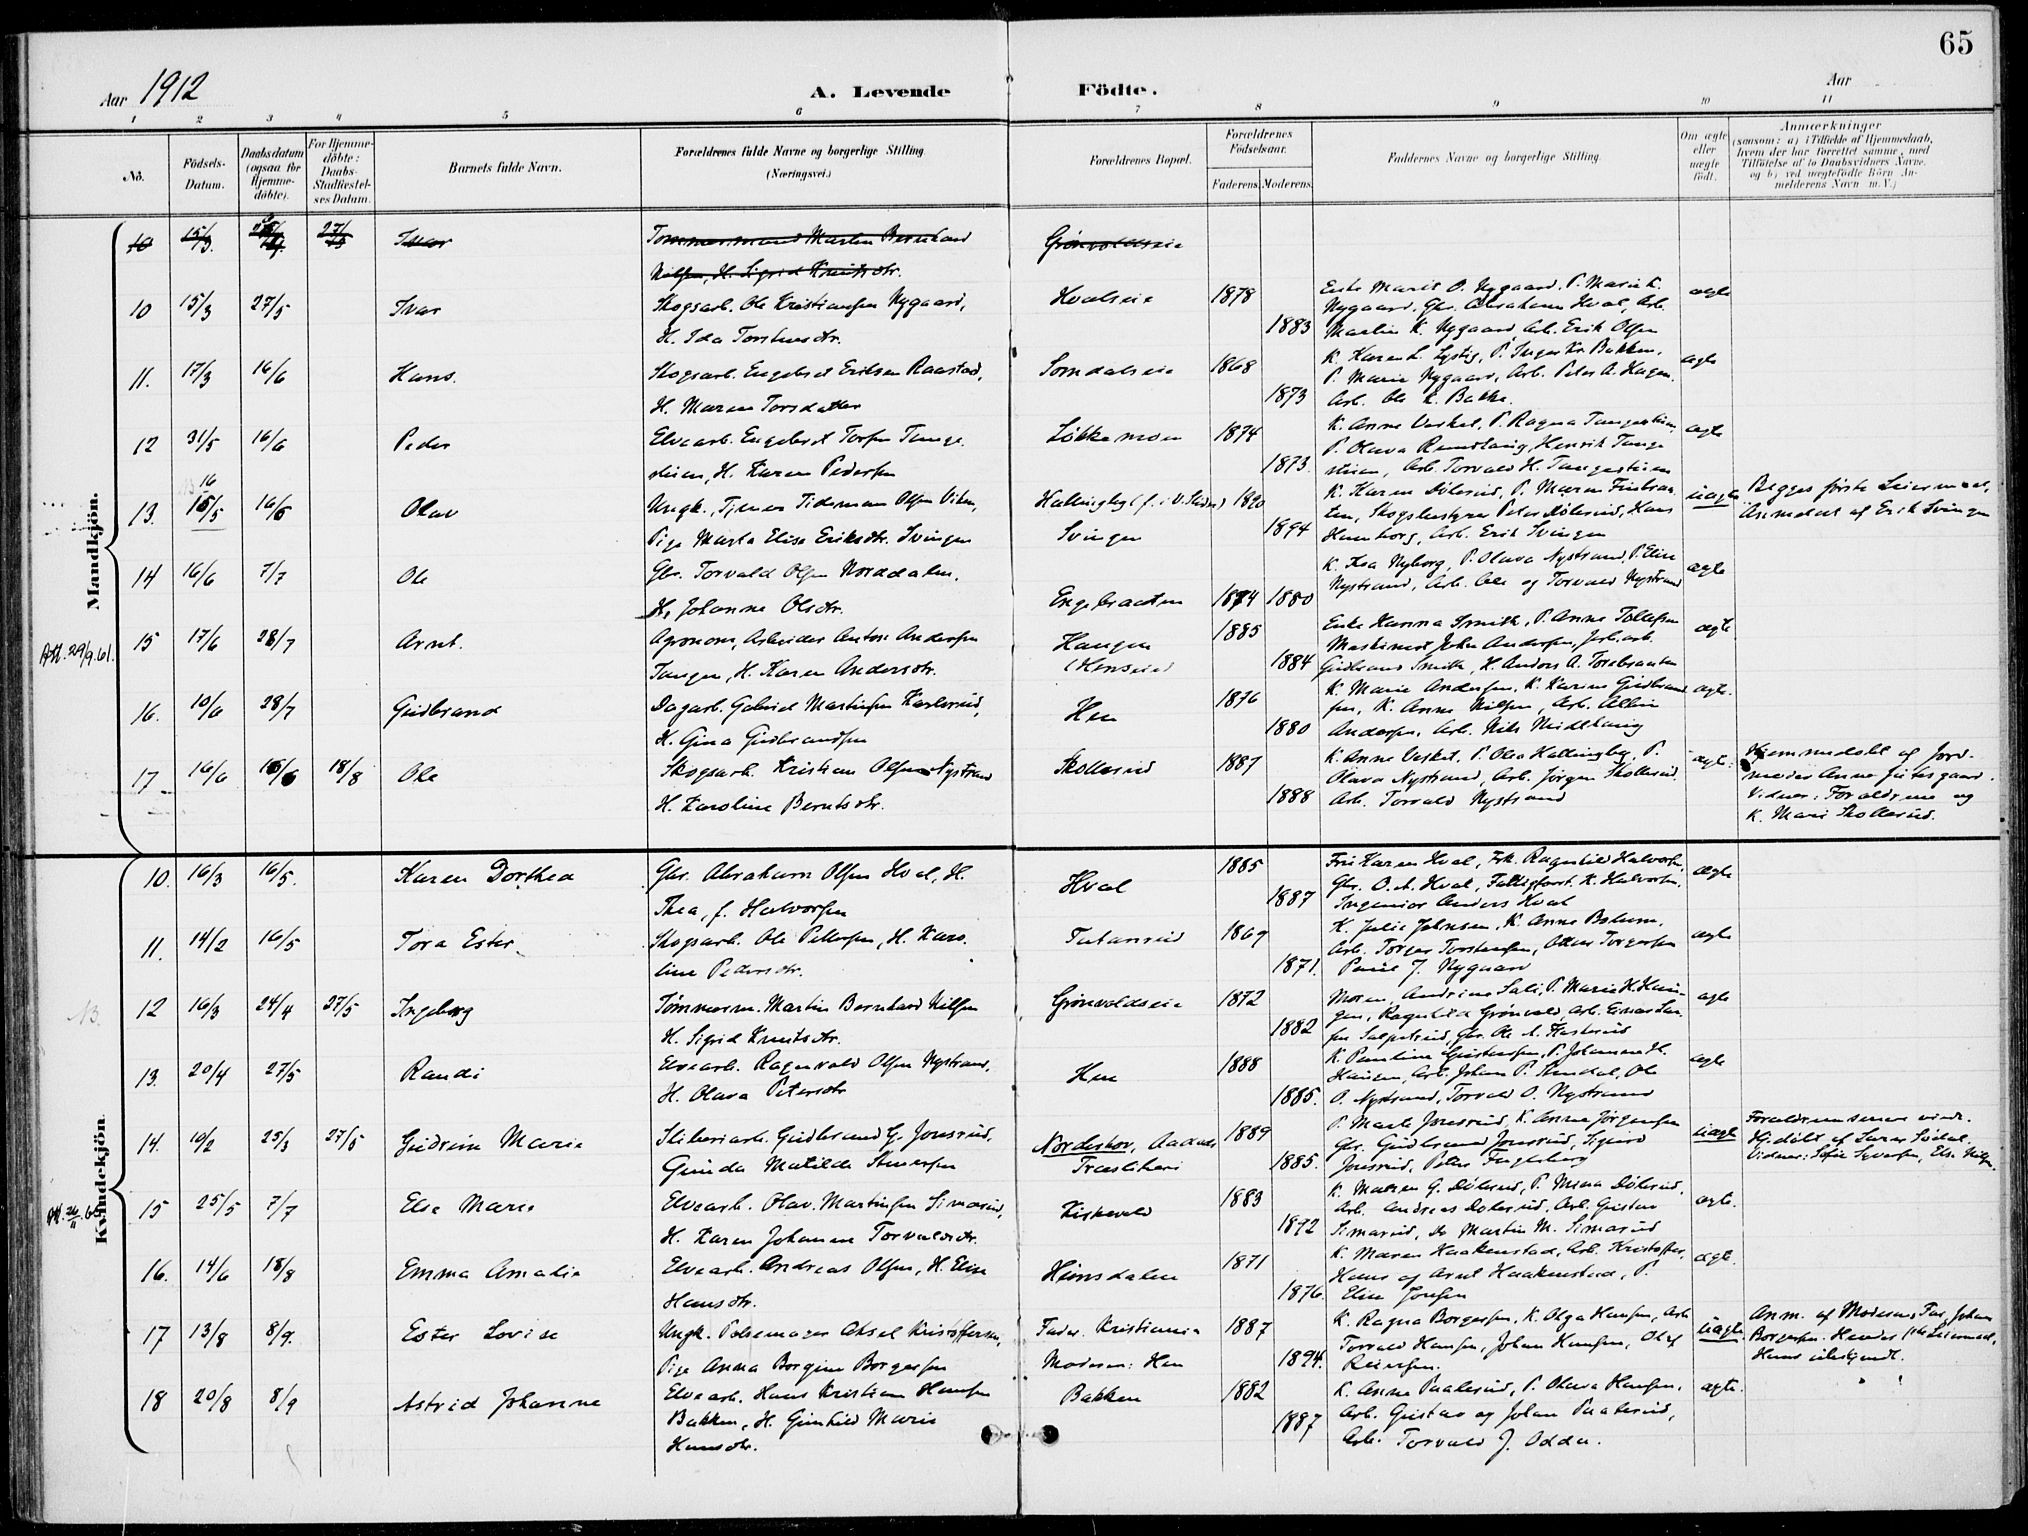 65
Aar 1912
A. Levende Födte.
Aar
1 2 3 4 5 6 7 8 9 10 11
No.
Födsels-
Datum.
Daabsdatum
(ogsaa for
Hjemme-
döbte).
For Hjemme-
döbte:
Daabs-
Stadfæstel-
ses Datum.
Barnets fulde Navn.
Forældrenes fulde Navne og borgerlige Stilling.
(Næringsvei.)
Forældrenes Bopæl.
Forældrenes
Födselsaar.
Faderens. Moderens.
Faddernes Navne og borgerlige Stilling.
Om ægte
eller
uægte
födt.
Anmærkninger
(saasom: a) i Tilfælde af Hjemmedaab,
hvem der har forrettet samme, med
Tilföielse af to Daabsvidners Navne,
og b) ved uægtefödte Börn An-
melderens Navn m. V.)
Mandkjön.
10 15/3 27/5 Ivar
Tømmermand Martin Bernhard
Nilsen, H. Sigrid Knutsdtr.
Grönvoldseie
10 15/3 27/5 Ivar
Skogsarb. Ole Kristiansen Nygaard,
H. Ida Torstensdtr.
Hvalseie 1878 1883
Enke Marit O. Nygaard, P. Marie K.
Nygaard, Gbr. Abraham Hval, Arb.
Martin K. Nygaard, Arb. Erik Olsen
ægte
11. 17/3 16/6 Hans.
Skogsarb. Engebret Eriksen Raastad,
H. Maren Torsdatter
Somdalseie 1868 1873
K. Karen L. Lystig, P. Inger Kr. Bakken,
P. Marie Nygaard, Arb. Peter A. Hagen,
Arb. Ole K. Bakke.
ægte
12 31/5 16/6 Peder
Elvearb. Engebret Torsen Tange-
stuen, H. Karen Pedersen
Løkkemoen 1874 1873.
K. Anne Vesket, P. Ragna Tangestuen,
P. Olava Henrik Tange
stuen, Arb. Torvald H. Tangestuen
ægte
13. 16/5 16/6 Olav
Ungk., Tjener Tideman Olsen Viken,
Pige Marta Elise Eriksdtr. Svingen
Hallingby
Svingen 1890 1894
K. Karen Dölerud, P. Maren
Skogbestyrer Peter Dölerud, Hans
Arb. Erik Svingen
uægte
Begges første Leiermaal,
Anmeldt af Erik Svingen
14 16/6 7/7 Ole
Gbr. Torvald Olsen Norddalen,
H. Johanne Olsdtr.
Engebraaten 1874 1880
K. Kea Nyborg, P. Olava Nystrand, P. Elise
Nystrand, Arb. Ole og Torvald Nystrand
ægte
Att. 29/9.61.
15 17/6 28/7 Arnt.
Agronom, Arbeider Anton Andersen
Tangen, H. Karen Andersdtr.
Haugen
(Henseie) 1885 1884
Enke Hanna Smith, P. Anne Tollefsen
Maskinist John Andersen, Jerb.arb.
Gudbrand Smith, K. Anders A.
ægte
16. 10/6 28/7 Gudbrand
Dagarb. Gabriel Martinsen Karlsrud,
H. Gina Gudbrandsen
Hen 1876 1880
K. Marie Andersen, K. Karine Gudbrand
sen, K. Anne Nilsen, Arb. Albin
Andersen, Arb. Nils Midthaug
ægte.
17 16/6 16/6 18/8 Ole
Skogsarb. Kristian Olsen Nystrand
H. Karoline Berntsdtr.
Skollerud 1887 1888
K. Anne Vesket, P. Olea Hallingby, P.
Olava Nystrand, Arb. Jörgen Skollerud,
Arb. Torvald Nystrand
ægte.
Hjemmedøbt af Jord-
moder Anne
Vidner: Forældrene og
K. Mari Skollerud.
Kvindekjön
10. 16/3 16/5. Karen Dorthea
Gbr. Abraham Olsen Hval, H.
Thea, f. Halvorsen
Hval 1885 1887
Fru Karen Hval, Frk. Ragnhild Halvorsen,
Gbr. O. A. Hval, Fattigforst. K. Halvorsen,
Ingeniør Anders Hval
ægte
11. 14/2 16/5 Tora Ester
Skogsarb. Ole Pettersen, H. Karo-
line Pedersdtr.
Tutanrud 1869 1871.
K. Julie Johnsen, K. Anne
Arb. Torger Torstensen, Torgersen
J. Nygaard
ægte
NB.
12 16/3 24/4 27/5 Ingeborg
Tömmerm. Martin Bernhard Nilsen
H. Sigrid Knutsdtr.
Grönvoldseie 1872 1882
Moren, Andrine Sali, P. Marie K. Hau-
gen, Ragnhild Grönvold, Arb. Einar
Gbr. Ole A. Flaskerud
ægte
13. 20/4 27/5 Randi
Elvearb. Ragnvald Olsen Nystrand,
H. Olava Petersdtr
Hen 1888 1885.
K. Pauline Gustavsen, P. Johanne H.
Haugen, Arb. Johan P. Ole
O. Nystrand, Torvald O. Nystrand
ægte
14. 10/2 25/3 27/5 Gudrun Marie
Sliberiarb. Gudbrand G. Jonsrud,
Gunda Matilde
Norderhov, Aadalen
Træsliberi 1889 1885.
P. Marte Jonsrud, K. Anna Jörgensen
Gbr. Gudbrand Jonsrud, Sigurd
Jonsrud, Peter Fuglehaug
uægte
Forældrene senere viede.
Hj.döbt af
Vidner: Sofie Syversen, Else Nilsen
15 25/5 7/7 Else Marie
Elvearb. Olav Martinsen Simarud,
H. Karen Johanne Torvaldsdtr.
Kirkevold 1883 1892
K. Maren G. Dölerud, P. Mina Dölerud,
Arb. Andreas Dölerud, Arb. Gustav
Simarud, Do Martin M. Simarud
ægte.
16. 14/6 18/8 Emma Amalie
Elvearb. Andreas Olsen, H. Elise
Hansdtr.
Heinsdalen 1871 1876.
K. Maren Haakenstad, Arb. Kristoffer,
Hans og Arnt Haakenstad, P.
Elise Jensen
ægte.
17 13/8 8/9. Ester Lovise
Ungk. Pølsemager Aksel Kristoffersen,
Pige Anna Borgine Borgersen
Fader. Kristiania
Moderen: Hen 1887 1894.
K. Ragna Borgersen, K. Olga Hansen, Arb
Torvald Hansen, Johan Hansen, Olaf
Reiersen.
uægte
Anm. af Moderens Far, Johan
Borgersen. Hendes 1ste Leiermaal,
Hans ubekjendt.
18 20/8 8/9 Astrid Johanne
Elvearb. Hans Kristian Hansen
Bakken, H. Gunhild Marie
Hansdtr.
Bakken 1882 1887
K. Anne Paalerud, P. Olava Hansen,
Arb. Gustav og Johan Paalerud,
Arb. Torvald J. Odda.
ægte.